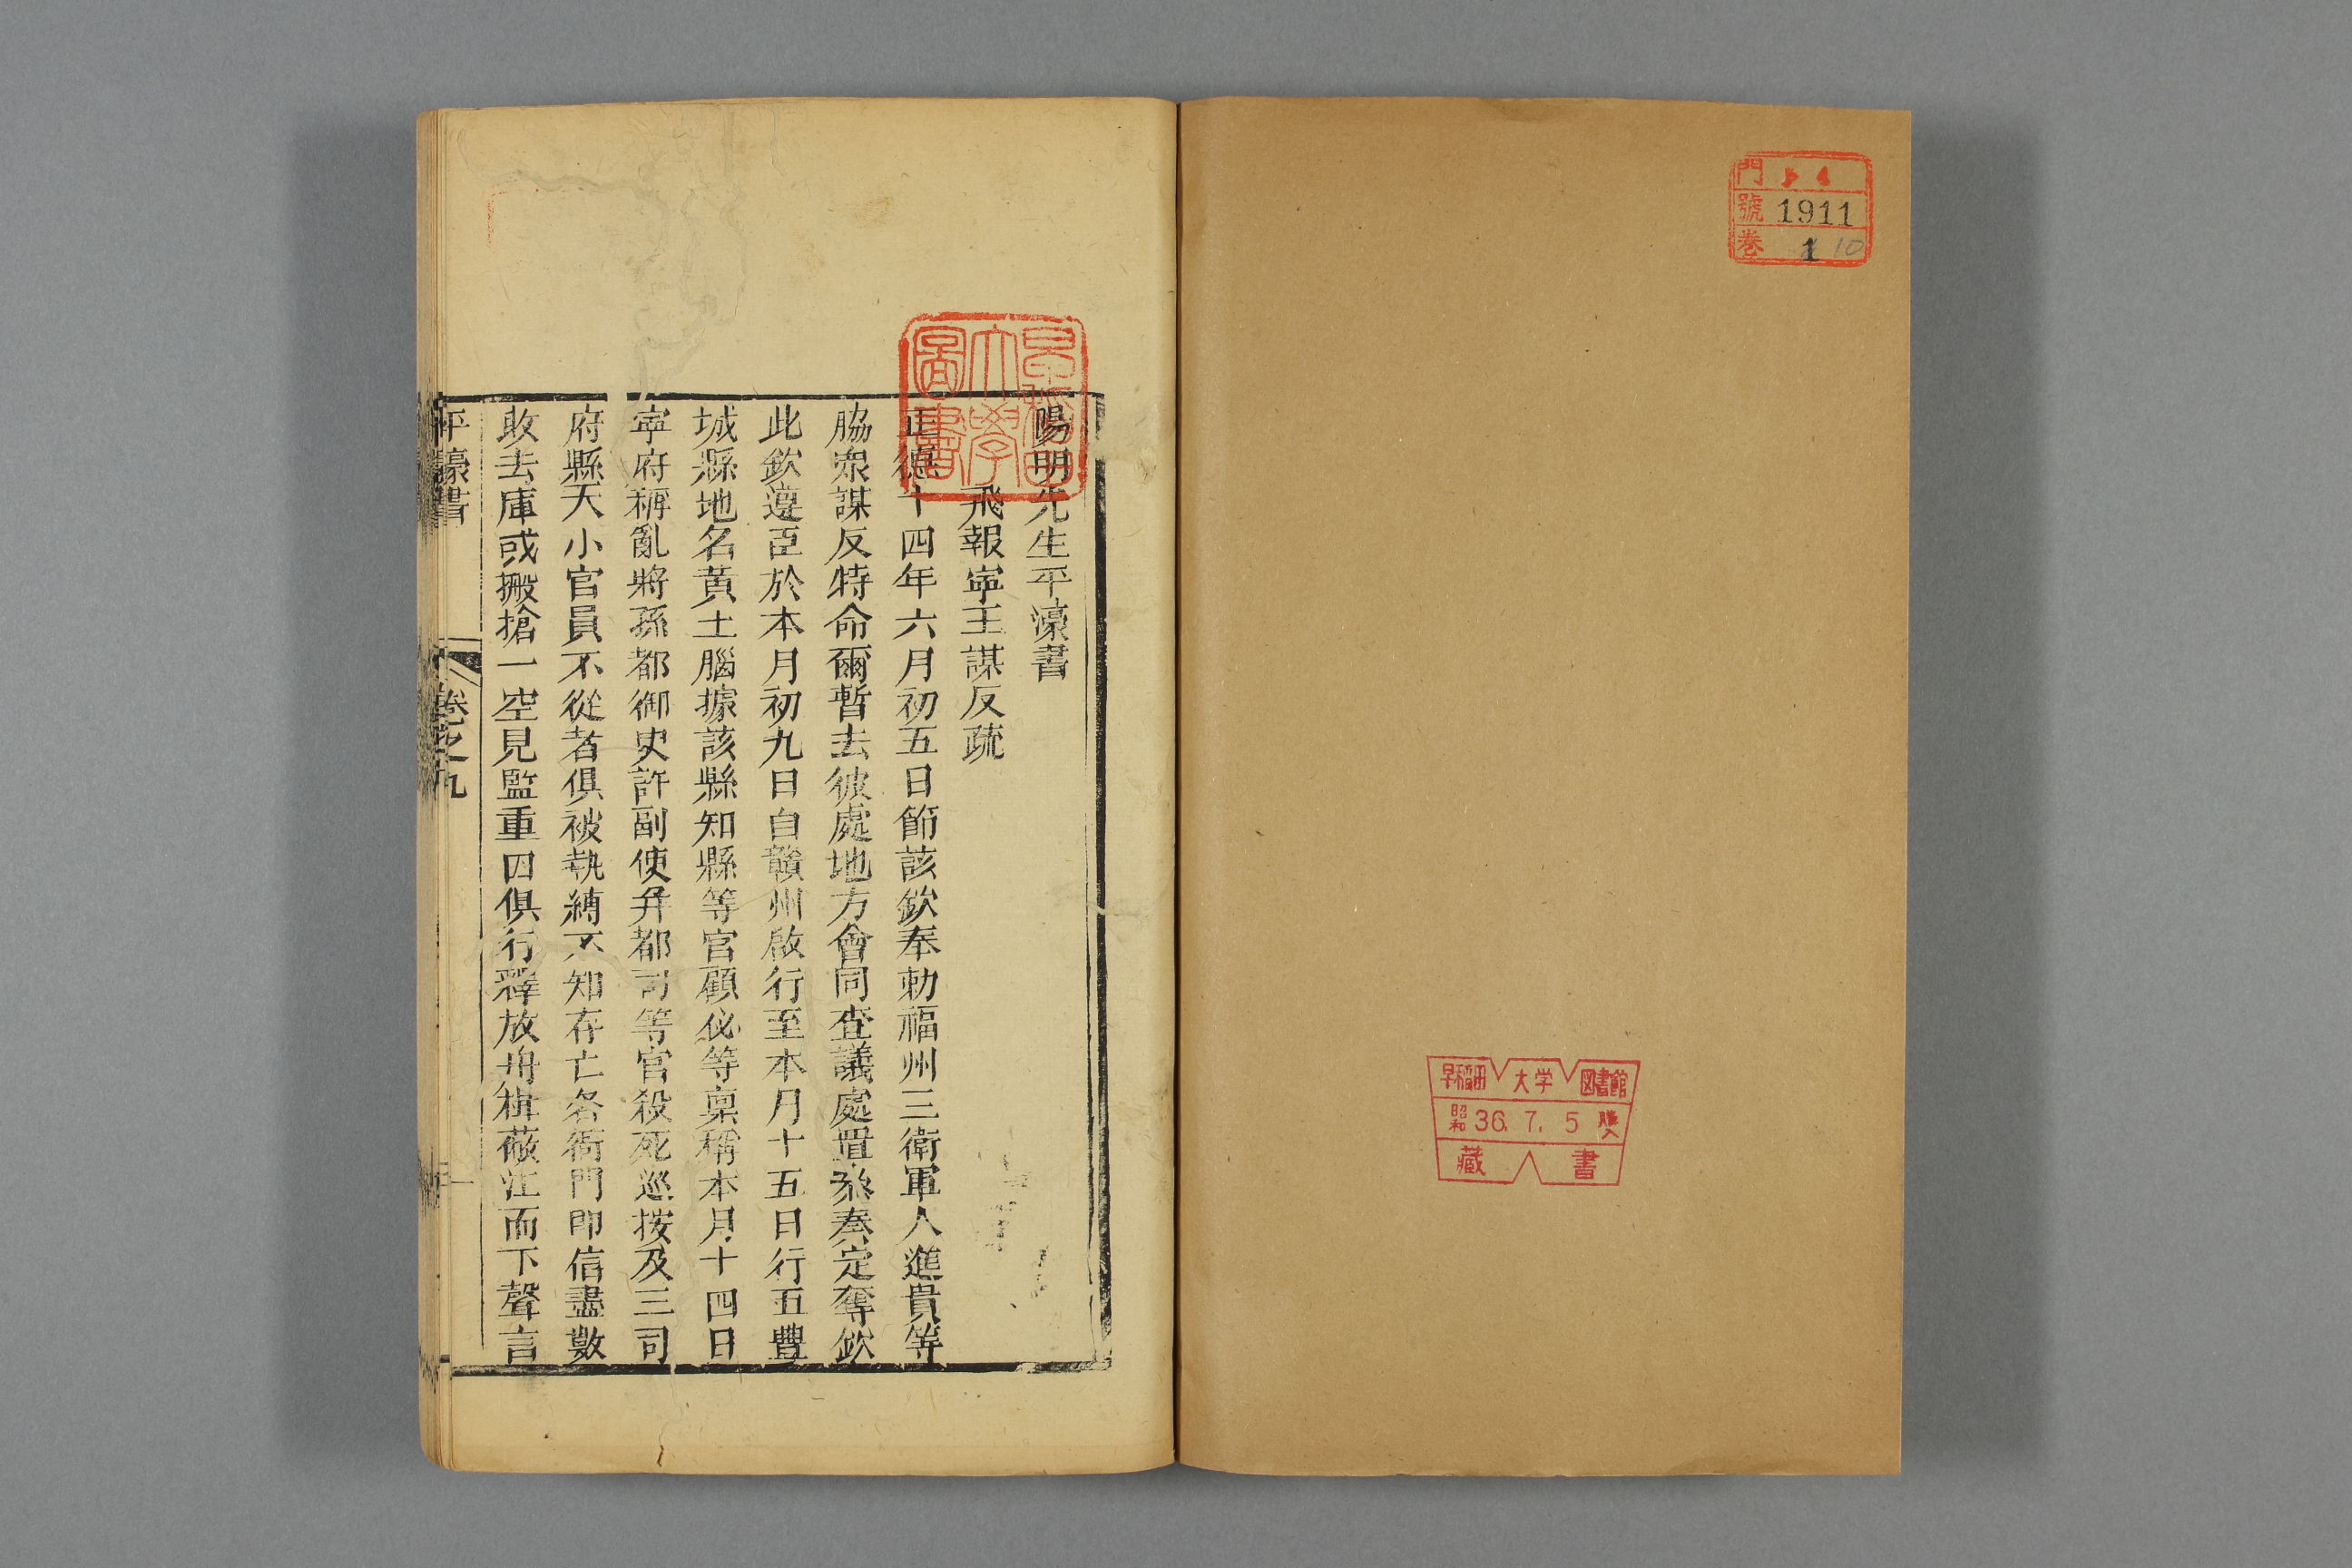 門
號 1911
卷 1 10
早稻田大学図書館
昭和 36. 7. 5 購入
藏書
早稻田大學圖書
陽明先生平濠書
飛報寧王謀反疏
正德十四年六月初五日節該欽奉勅福州三衛軍人進貴等
脇衆謀反特命爾暫去彼處地方會同查議處置叅奏定奪欽
此欽遵臣於本月初九日自贛州啟行至本月十五日行五豐
城縣地名黃土腦據該縣知縣等官顧佖等稟稱本月十四日
寧府稱亂將孫都御史許副使并都司等官殺死巡按及三司
府縣大小官員不從者俱被執縛不知存亡各衙門印信盡數
收去庫或搬搶一空見監重囚俱行釋放舟楫蔽江而下聲言
平濠書
卷之九
一